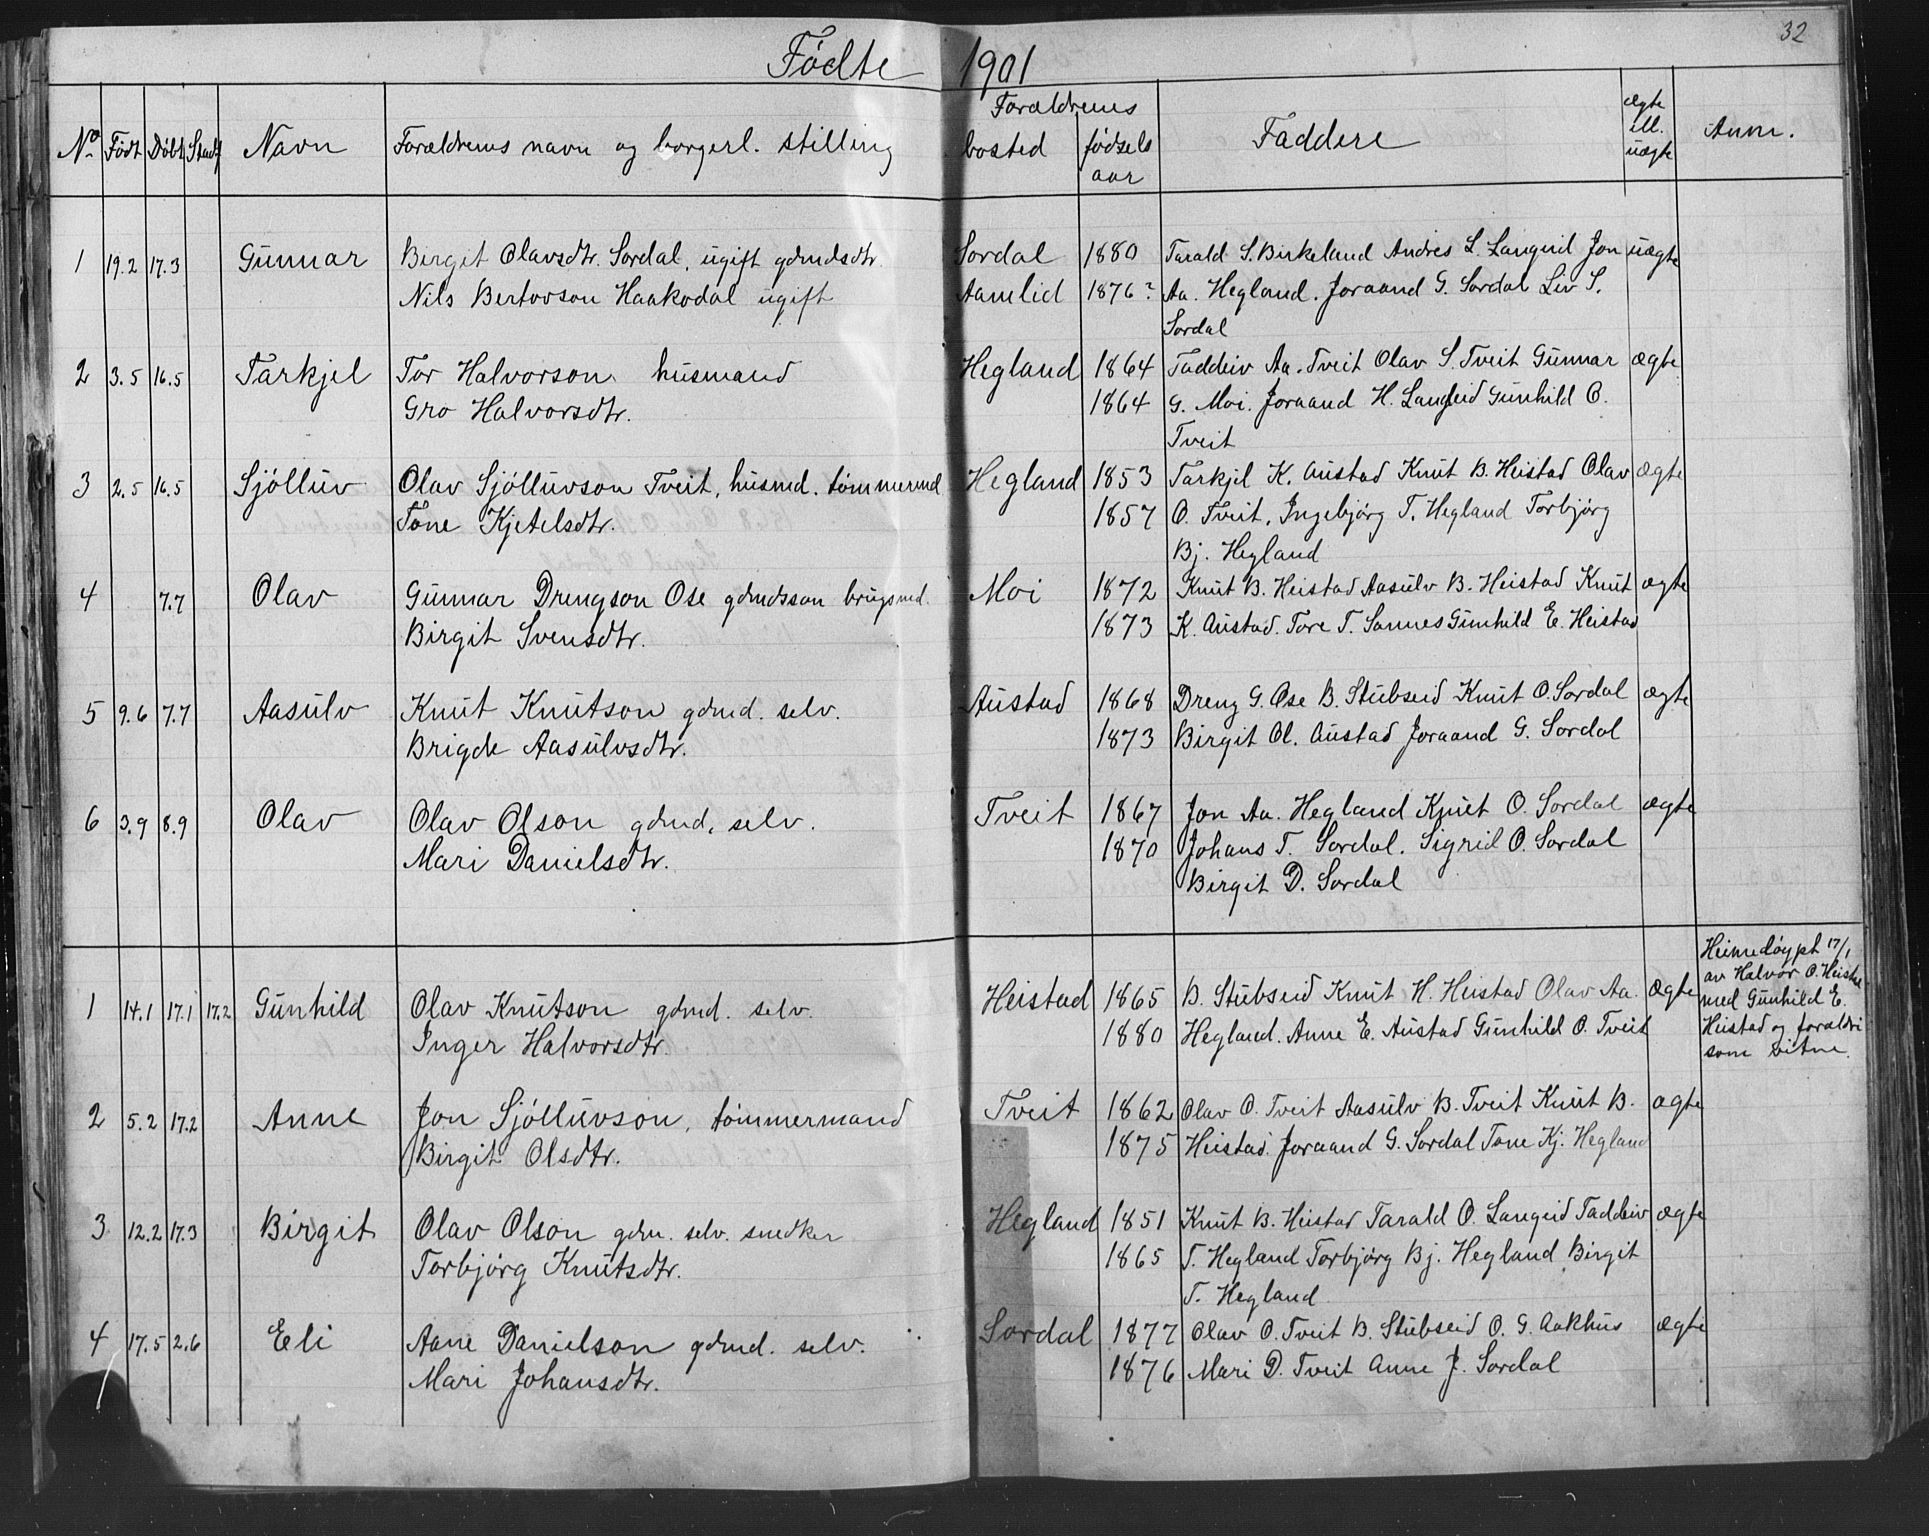 32
Födte 1901
No. Födt Döbt Stadf. Navn Forældrenes navn og borgerl. stilling Forældrenes bosted fødsels aar Faddere ægte ell. uægte Anm.
1 19.2 17.3 Gunnar Birgit Olavsdtr. Sordal, ugift gdmdsdtr. Sordal 1880 Tarald S. Birkeland Andres L. Langeid Jon uægte
Nils Bertovson Haakodal ugift Aamlid 1876? Aa. Hegland. Joraand G. Sordal Liv S.
Sordal
2 3.5 16.5 Tarkjel Tor Halvorson husmand Hegland 1864 Taddeiv Aa. Tveit Olav S. Tveit Gunnar ægte
Gro Halvorsdtr. 1864 G. Moi. Joraand H. Langeid Gunhild O.
Tveit
3 2.5 16.5 Sjölluv Olav Sjölluvson Tveit, husmd. tömmermd Hegland 1853 Tarkjel K. Austad Knut B. Heistad Olav ægte
Tone Kjetelsdtr. 1857 O. Tveit. Ingebjørg T. Hegland Torbjørg
Bj. Hegland
4 7.7 Olav Gunnar Drengson Ose gdmdsson brugsmd. Moi 1872 Knut B. Heistad Aasulv B. Heistad Knut ægte
Birgit Svensdtr. 1873 K. Austad. Tore T. Sannes Gunhild E. Heistad
5 9.6 7.7 Aasulv Knut Knutson gdmd. selv. Austad 1868 Dreng G. Ose B. Stubseid Knut O. Sordal ægte
Brigde Aasulvsdtr. 1873 Birgit Ol. Austad Joraand G. Sordal
6 3.9 8.9 Olav Olav Olson gdmd. selv. Tveit 1867 Jon Aa. Hegland Knut O. Sordal ægte
Mari Danielsdtr. 1870 Johans T. Sordal. Sigrid O. Sordal
Birgit D. Sordal
1 14.1 17.1 17.2 Gunhild Olav Knutson gdmd. selv. Heistad 1865 B. Stubseid Knut H. Heistad Olav Aa. ægte
Inger Halvorsdtr. 1880 Hegland. Anne E. Austad Gunhild O. Tveit
Heimedöypt 17/1
av Halvor O.
med Gunhild E.
Heistad og foræld
som vitne.
2 5.2 17.2 Anne Jon Sjölluvson, tömmermand Tveit 1862 Olav O. Tveit Aasulv B. Tveit Knut B. ægte
Birgit Olsdtr. 1875 Heistad. Joraand G. Sordal Tone Kj. Hegland
3 12.2 17.3 Birgit Olav Olson gdm. selv. snedker Hegland 1851 Knut B. Heistad Tarald O. Langeid Taddeiv ægte
Torbjørg Knutsdtr. 1865 T. Hegland Torbjørg Bj. Hegland Birgit
T. Hegland
4 17.5 2.6 Eli Aane Danielson gdmd. selv. Sordal 1877 Olav O. Tveit B. Stubseid O. G. Aakhus ægte
Mari Johansdtr. 1876 Mari D. Tveit Anne J. Sordal